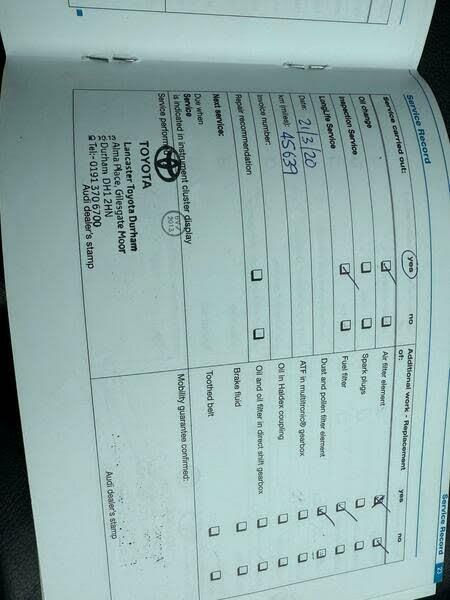 Service Record
Service Record 23
Service carried out:
yes
no
Oil change
Inspection Service
LongLife Service
Date: 21/3/20
km (miles): 45639
Invoice number:
Repair recommendation
Next service:
Due when
Service
is indicated in instrument cluster display
Service performed
TOYOTA
Lancaster Toyota Durham
Alma Place, Gilesgate Moor
Durham DH1 2HN
Tel:- 0191 370 6700
Audi dealer's stamp
Additional work - Replacement
of:
yes
no
Air filter element
Spark plugs
Fuel filter
Dust and pollen filter element
ATF in multitronic® gearbox
Oil in Haldex coupling
Oil and oil filter in direct shift gearbox
Brake fluid
Toothed belt
Mobility guarantee confirmed:
Audi dealer's stamp